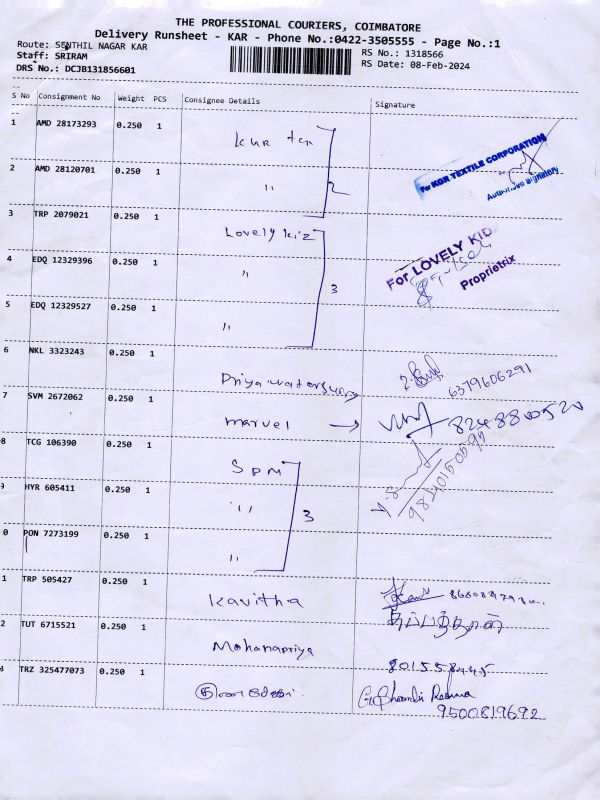 THE PROFESSIONAL COURIERS, COIMBATORE
Delivery Runsheet - KAR - Phone No.:0422-3505555 - Page No.:1
Route: SENTHIL NAGAR KAR
RS No.: 1318566
Staff: SRIRAM
RS Date: 08-Feb-2024
DRS No.: DCJB131856601
S No Consignment No Weight PCS Consignee Details Signature
1 AMD 28173293 0.250 1
For KGR TEXTILE CORPORATION
Authorised Signatory
2 AMD 28120701 0.250 1 " 2
3 TRP 2079021 0.250 1 Lovely kiz
For LOVELY KID
Proprietrix
4 EDQ 12329396 0.250 1 " 3
5 EDQ 12329527 0.250 1 "
6 NKL 3323243 0.250 1 Priya
6379606291
7 SVM 2672062 0.250 1 marvel →
8 TCG 106390 0.250 1 SPM
9 HYR 605411 0.250 1 " 3
0 PON 7273199 0.250 1 "
1 TRP 505427 0.250 1 Kavitha
2 TUT 6715521 0.250 1 Mohanapriya
3 TRZ 325477073 0.250 1
9500819692